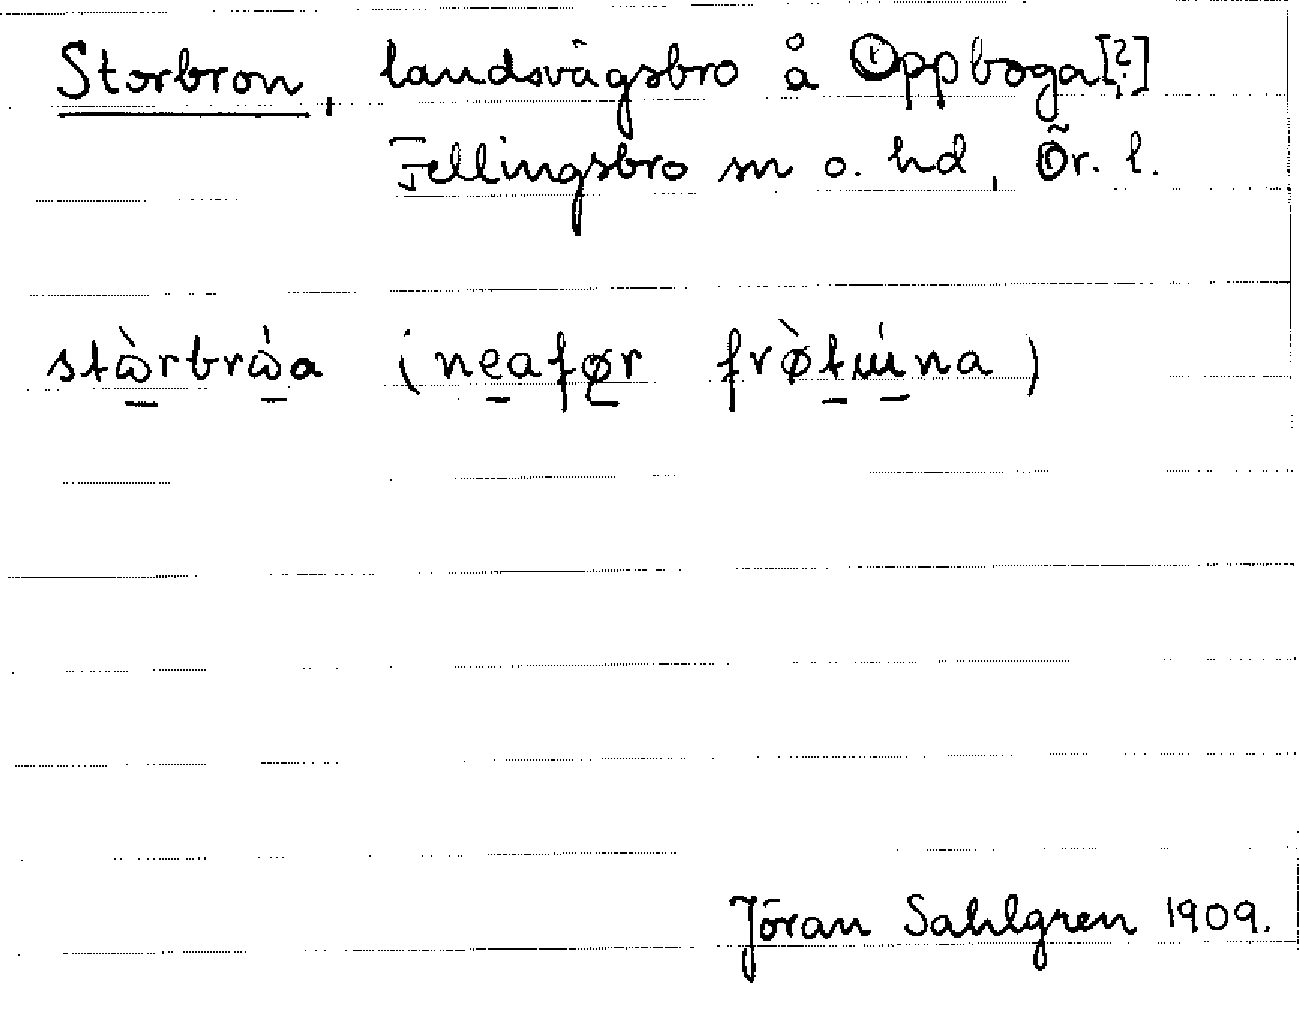 Storbron, landsvägsbro å Oppboga[?]
Fellingsbro sn o. hd, Ör. l.
stὼrbrὼa (neafør frø̀tɯ́na)
Jöran Sahlgren 1909.